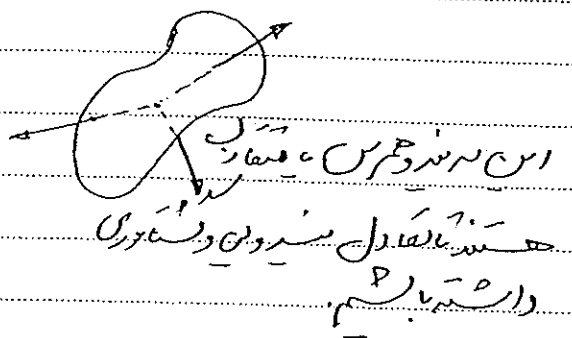 این سه نیرو همرس یا متقارب
هستند تا تعادل نیرویی و گشتاوری
داشته باشیم.